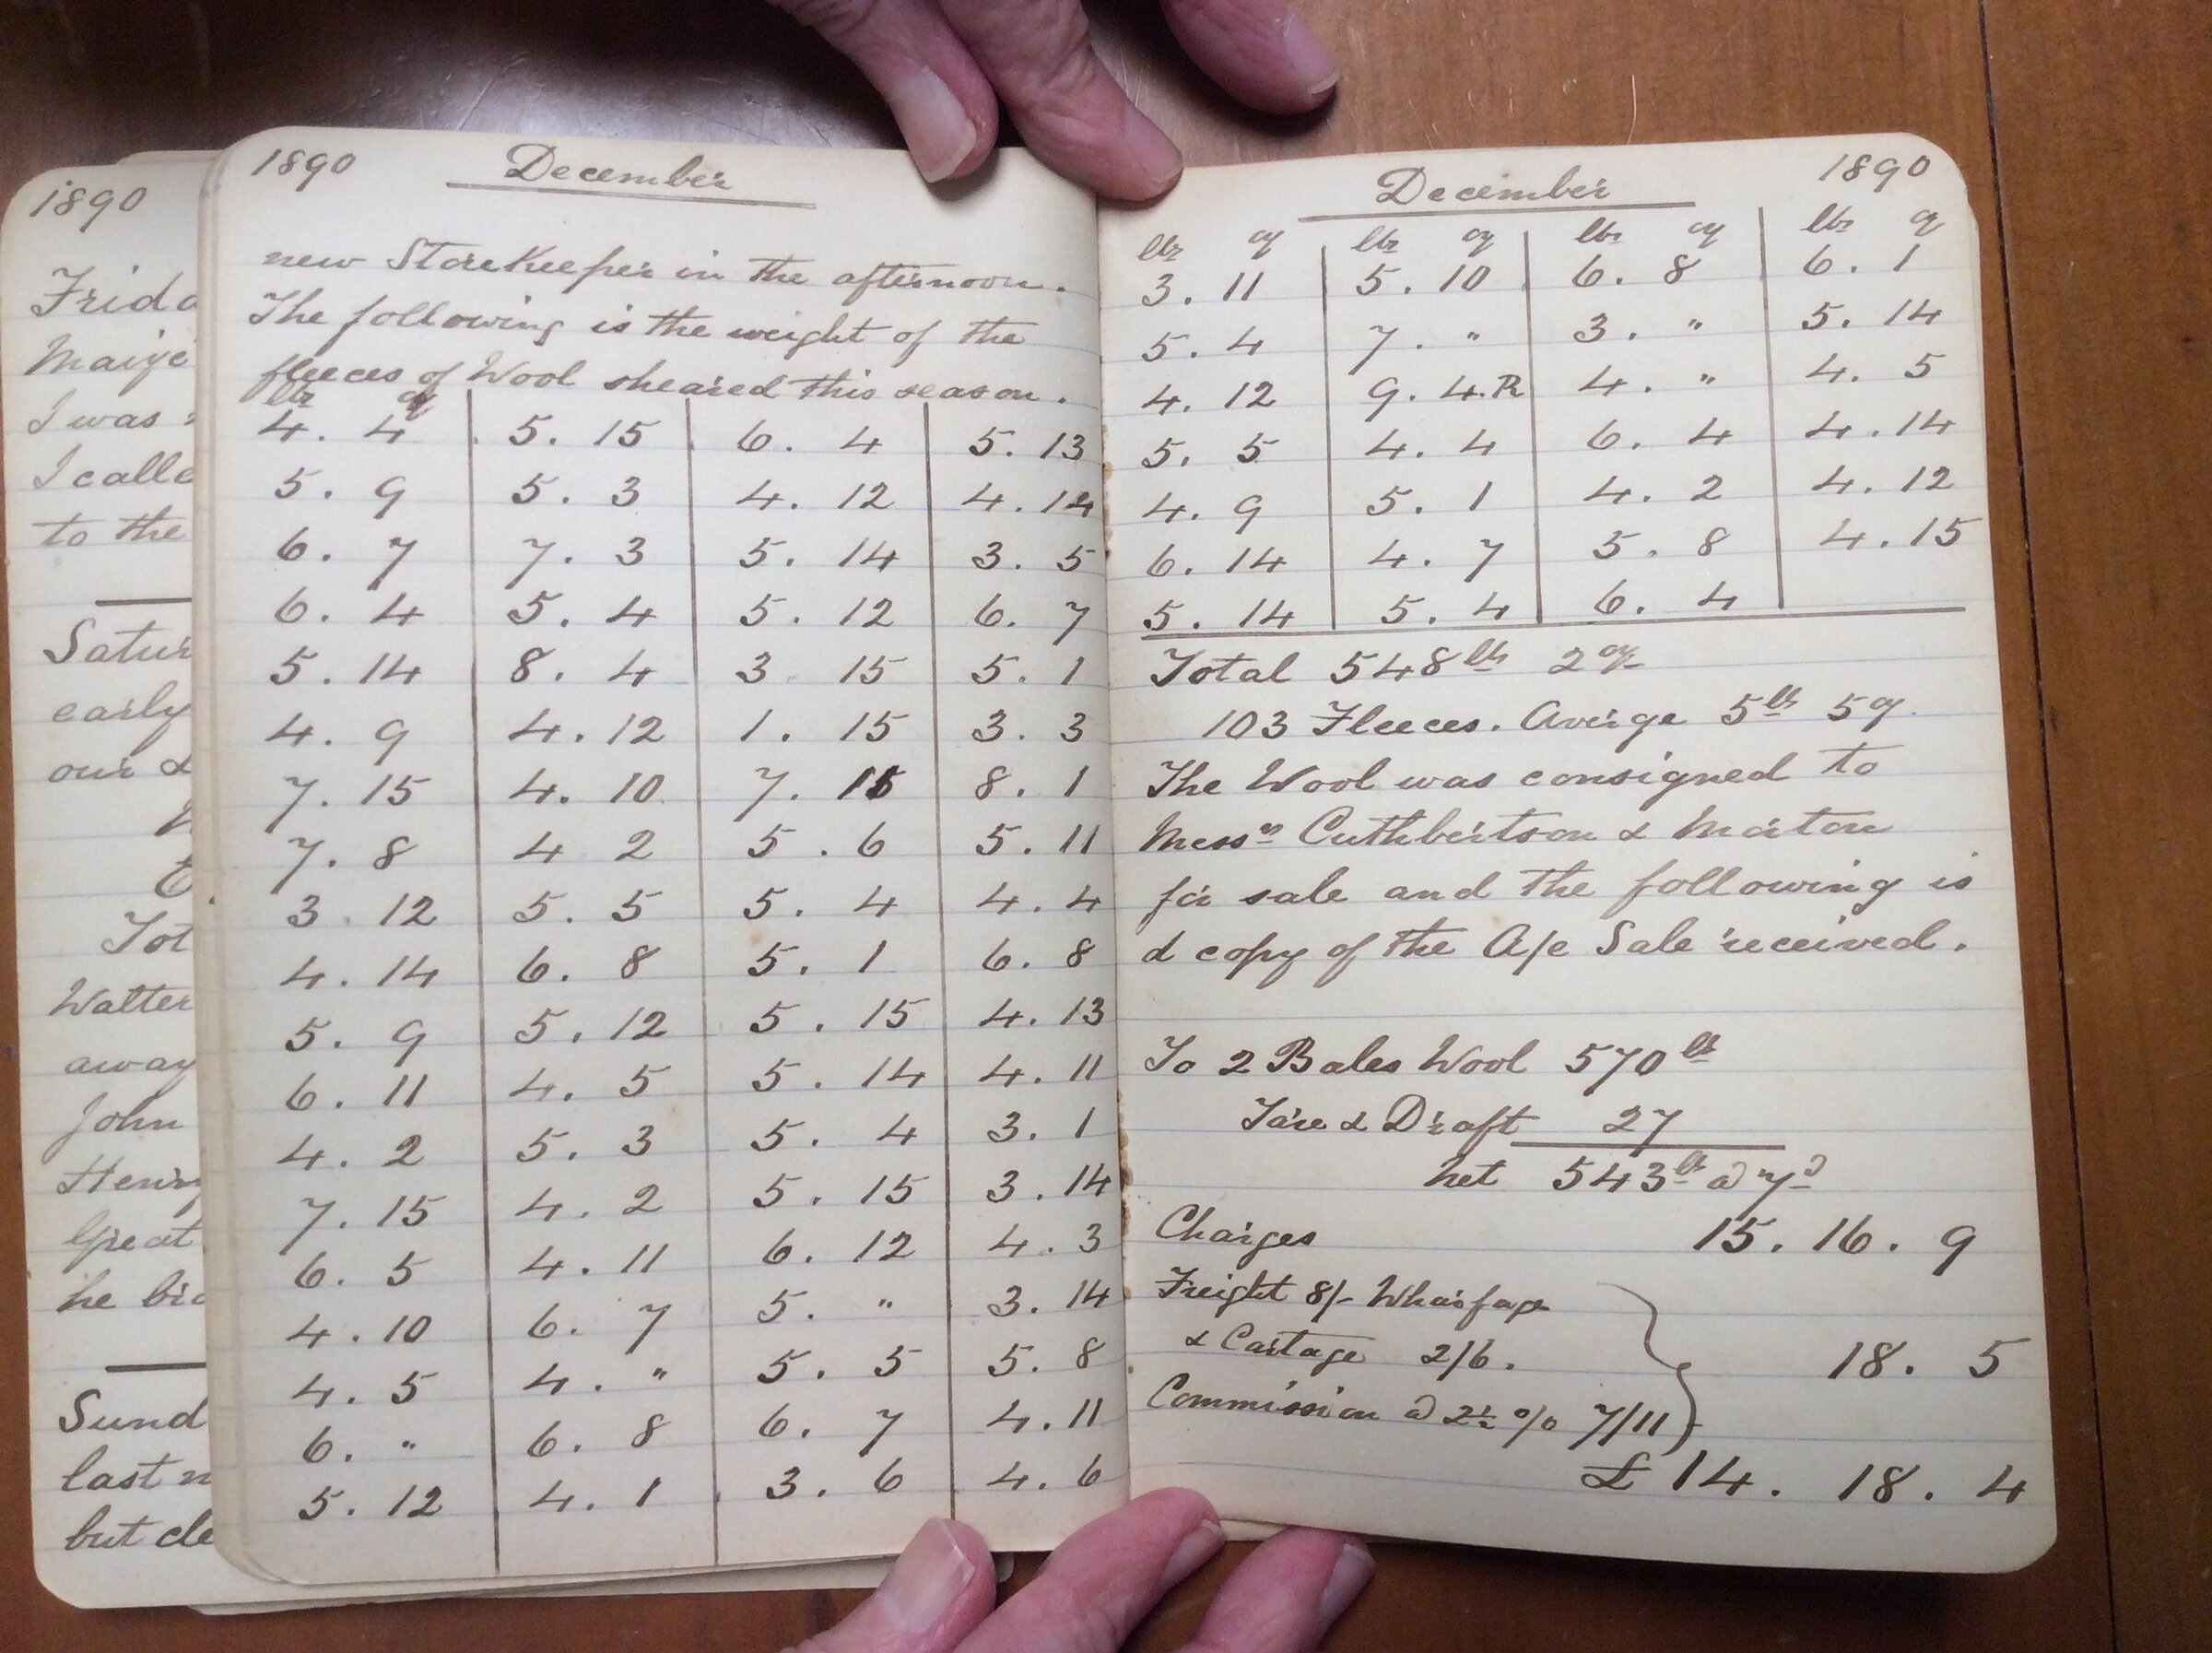 1890
Frida
Maize
I was
I calle
to the
Satur
early
our &
Tot
Walter
away
John
Henry
Great
he bio
Sund
last n
but cle
1890 December
new StoreKeeper in the afternoon.
The following is the weight of the
fleeces of Wool sheared this season.
lbs oz
4. 4 5. 15 6. 4 5. 13
5. 9 5. 3 4. 12 4. 14
6. 7 7. 3 5. 14 3. 5
6. 4 5. 4 5. 12 6. 7
5. 14 8. 4 3 15 5. 1
4. 9 4. 12 1. 15 3. 3
7. 15 4. 10 7. 15 8. 1
7. 8 4 2 5. 6 5. 11
3. 12 5. 5 5. 4 4. 4
4. 14 6. 8 5. 1 6. 8
5. 9 5. 12 5. 15 4. 13
6. 11 4. 5 5. 14 4. 11
4. 2 5. 3 5. 4 3. 1
7. 15 4. 2 5. 15 3. 14
6. 5 4. 11 6. 12 4. 3
4. 10 6. 7 5. " 3. 14
4. 5 4. " 5. 5 5. 8
6. " 6. 8 6. 7 4. 11
5. 12 4. 1 3. 6 4. 6
December 1890
lbs oz lbs oz lbs oz lbs oz
3. 11 5. 10 6. 8 6. 1
5. 4 7. " 3. " 5. 14
4. 12 9. 4.R 4. " 4. 5
5. 5 4. 4 6. 4 4. 14
4. 9 5. 1 4. 2 4. 12
6. 14 4. 7 5. 8 4. 15
5. 14 5. 4 6. 4
Total 548 lbs 2 oz
103 Fleeces. Averge 5 lbs 5 oz.
The Wool was consigned to
Messrs Cuthbertson & Morton
for sale and the following is
a copy of the A/c Sale received.
To 2 Bales Wool 570 lbs
Tare & Draft 27
net 543 lbs @ 7d
Charges 15. 16. 9
Freight 8/- Wharfage
& Cartage 2/6.
18. 5
Commission @ 2½ % 7/11
£14. 18. 4